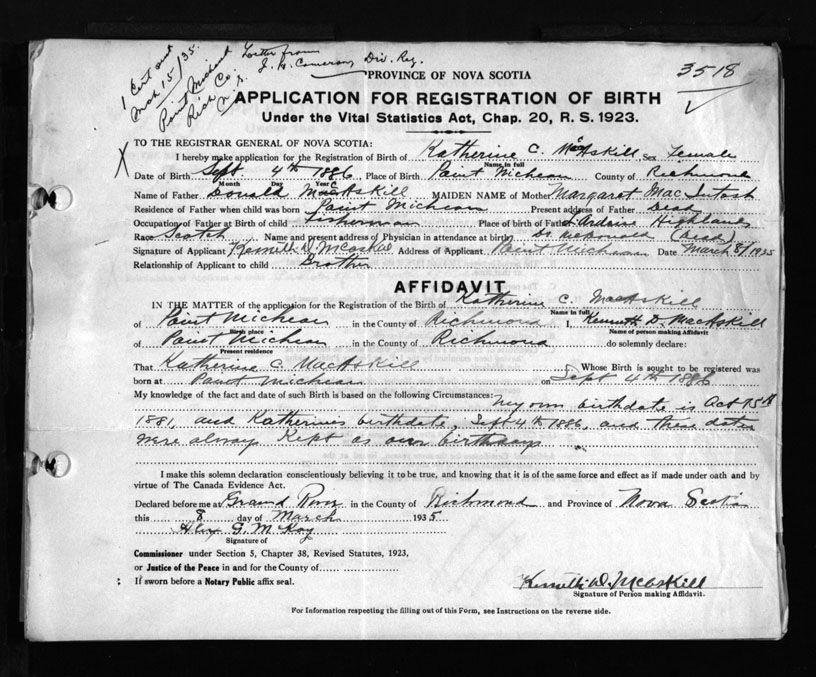 1 Cert sent
Mar 15/35.
Point Michaud
Rich Co.
N.S.
Letter from
J. H. Cameron, Div. Reg.
3518
PROVINCE OF NOVA SCOTIA
APPLICATION FOR REGISTRATION OF BIRTH
Under the Vital Statistics Act, Chap. 20, R. S. 1923.
X
TO THE REGISTRAR GENERAL OF NOVA SCOTIA:
I hereby make application for the Registration of Birth of Katherine C. MacAskill Sex Female
Name in full
Date of Birth Sept 4th 1886 Place of Birth Point Michean County of Richmond
Month Day Year
Name of Father Donald MacAskill MAIDEN NAME of Mother Margaret MacIntosh
Residence of Father when child was born Point Michean Present address of Father Dead
Occupation of Father at Birth of child Fisherman Place of birth of Father L'Ardoise Highlands
Race Scotch Name and present address of Physician in attendance at birth Dr McDonald (Dead)
Signature of Applicant Kenneth D. McAskill Address of Applicant Point Michean Date March 8/1935
Relationship of Applicant to child Brother
AFFIDAVIT
IN THE MATTER of the application for the Registration of the Birth of Katherine C. MacAskill
Name in full
of Point Michean in the County of Richmond I, Kenneth D. MacAskill
Birth place Name of person making Affidavit
of Point Michean in the County of Richmond do solemnly declare:
Present residence
That Katherine C MacAskill Whose Birth is sought to be registered was
born at Point Michean on Sept 4th 1886
My knowledge of the fact and date of such Birth is based on the following Circumstances: My own birthdate is Oct 15th
1881, and Katherines birthdate, Sept 4th 1886, and these dates
were always kept as our birthdays
I make this solemn declaration conscientiously believing it to be true, and knowing that it is of the same force and effect as if made under oath and by
virtue of The Canada Evidence Act.
Declared before me at Grand River in the County of Richmond and Province of Nova Scotia
this 8 day of March 1935
Alex G. McKay
Signature of
Commissioner under Section 5, Chapter 38, Revised Statutes, 1923,
or Justice of the Peace in and for the County of
If sworn before a Notary Public affix seal.
Kenneth D. McAskill
Signature of Person making Affidavit.
For Information respecting the filling out of this Form, see Instructions on the reverse side.